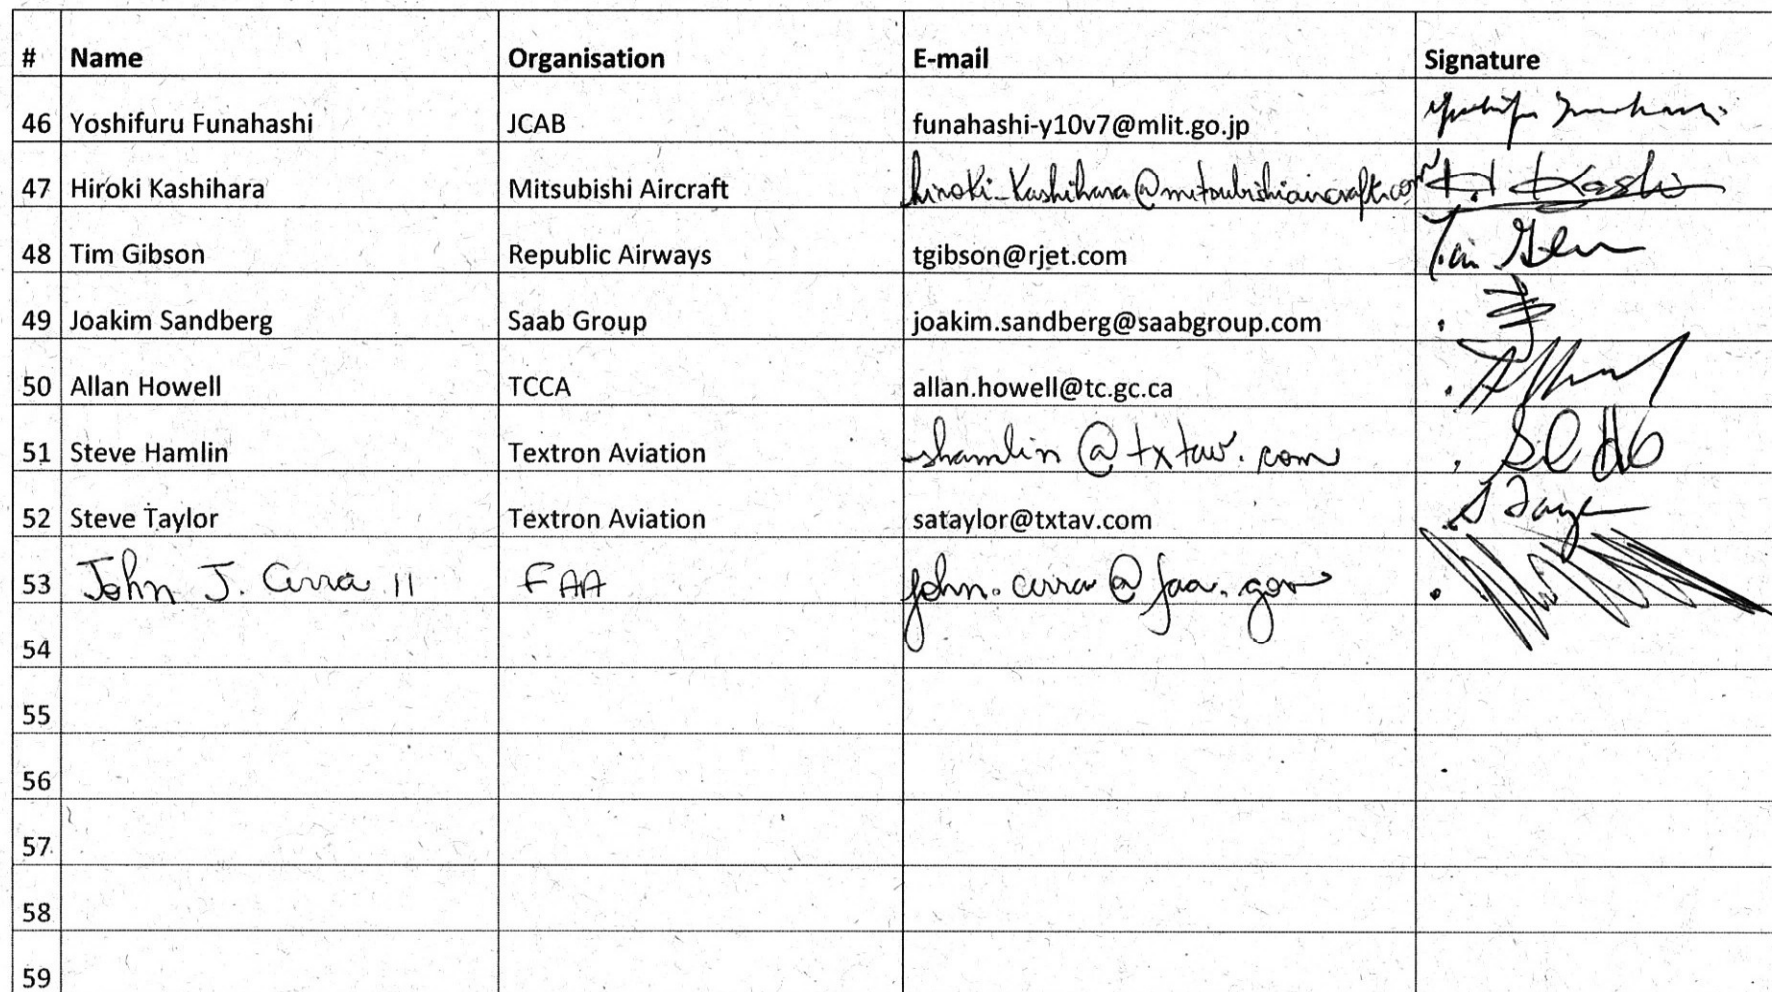 # Name Organisation E-mail Signature
46 Yoshifuru Funahashi JCAB funahashi-y10v7@mlit.go.jp
47 Hiroki Kashihara Mitsubishi Aircraft hiroki_kashihara@mitsubishiaircraft.com H. Kashi
48 Tim Gibson Republic Airways tgibson@rjet.com
49 Joakim Sandberg Saab Group joakim.sandberg@saabgroup.com
50 Allan Howell TCCA allan.howell@tc.gc.ca
51 Steve Hamlin Textron Aviation shamlin@txtav.com
52 Steve Taylor Textron Aviation sataylor@txtav.com
53 John J. Cirra II FAA john.cirra@faa.gov
54
55
56
57
58
59